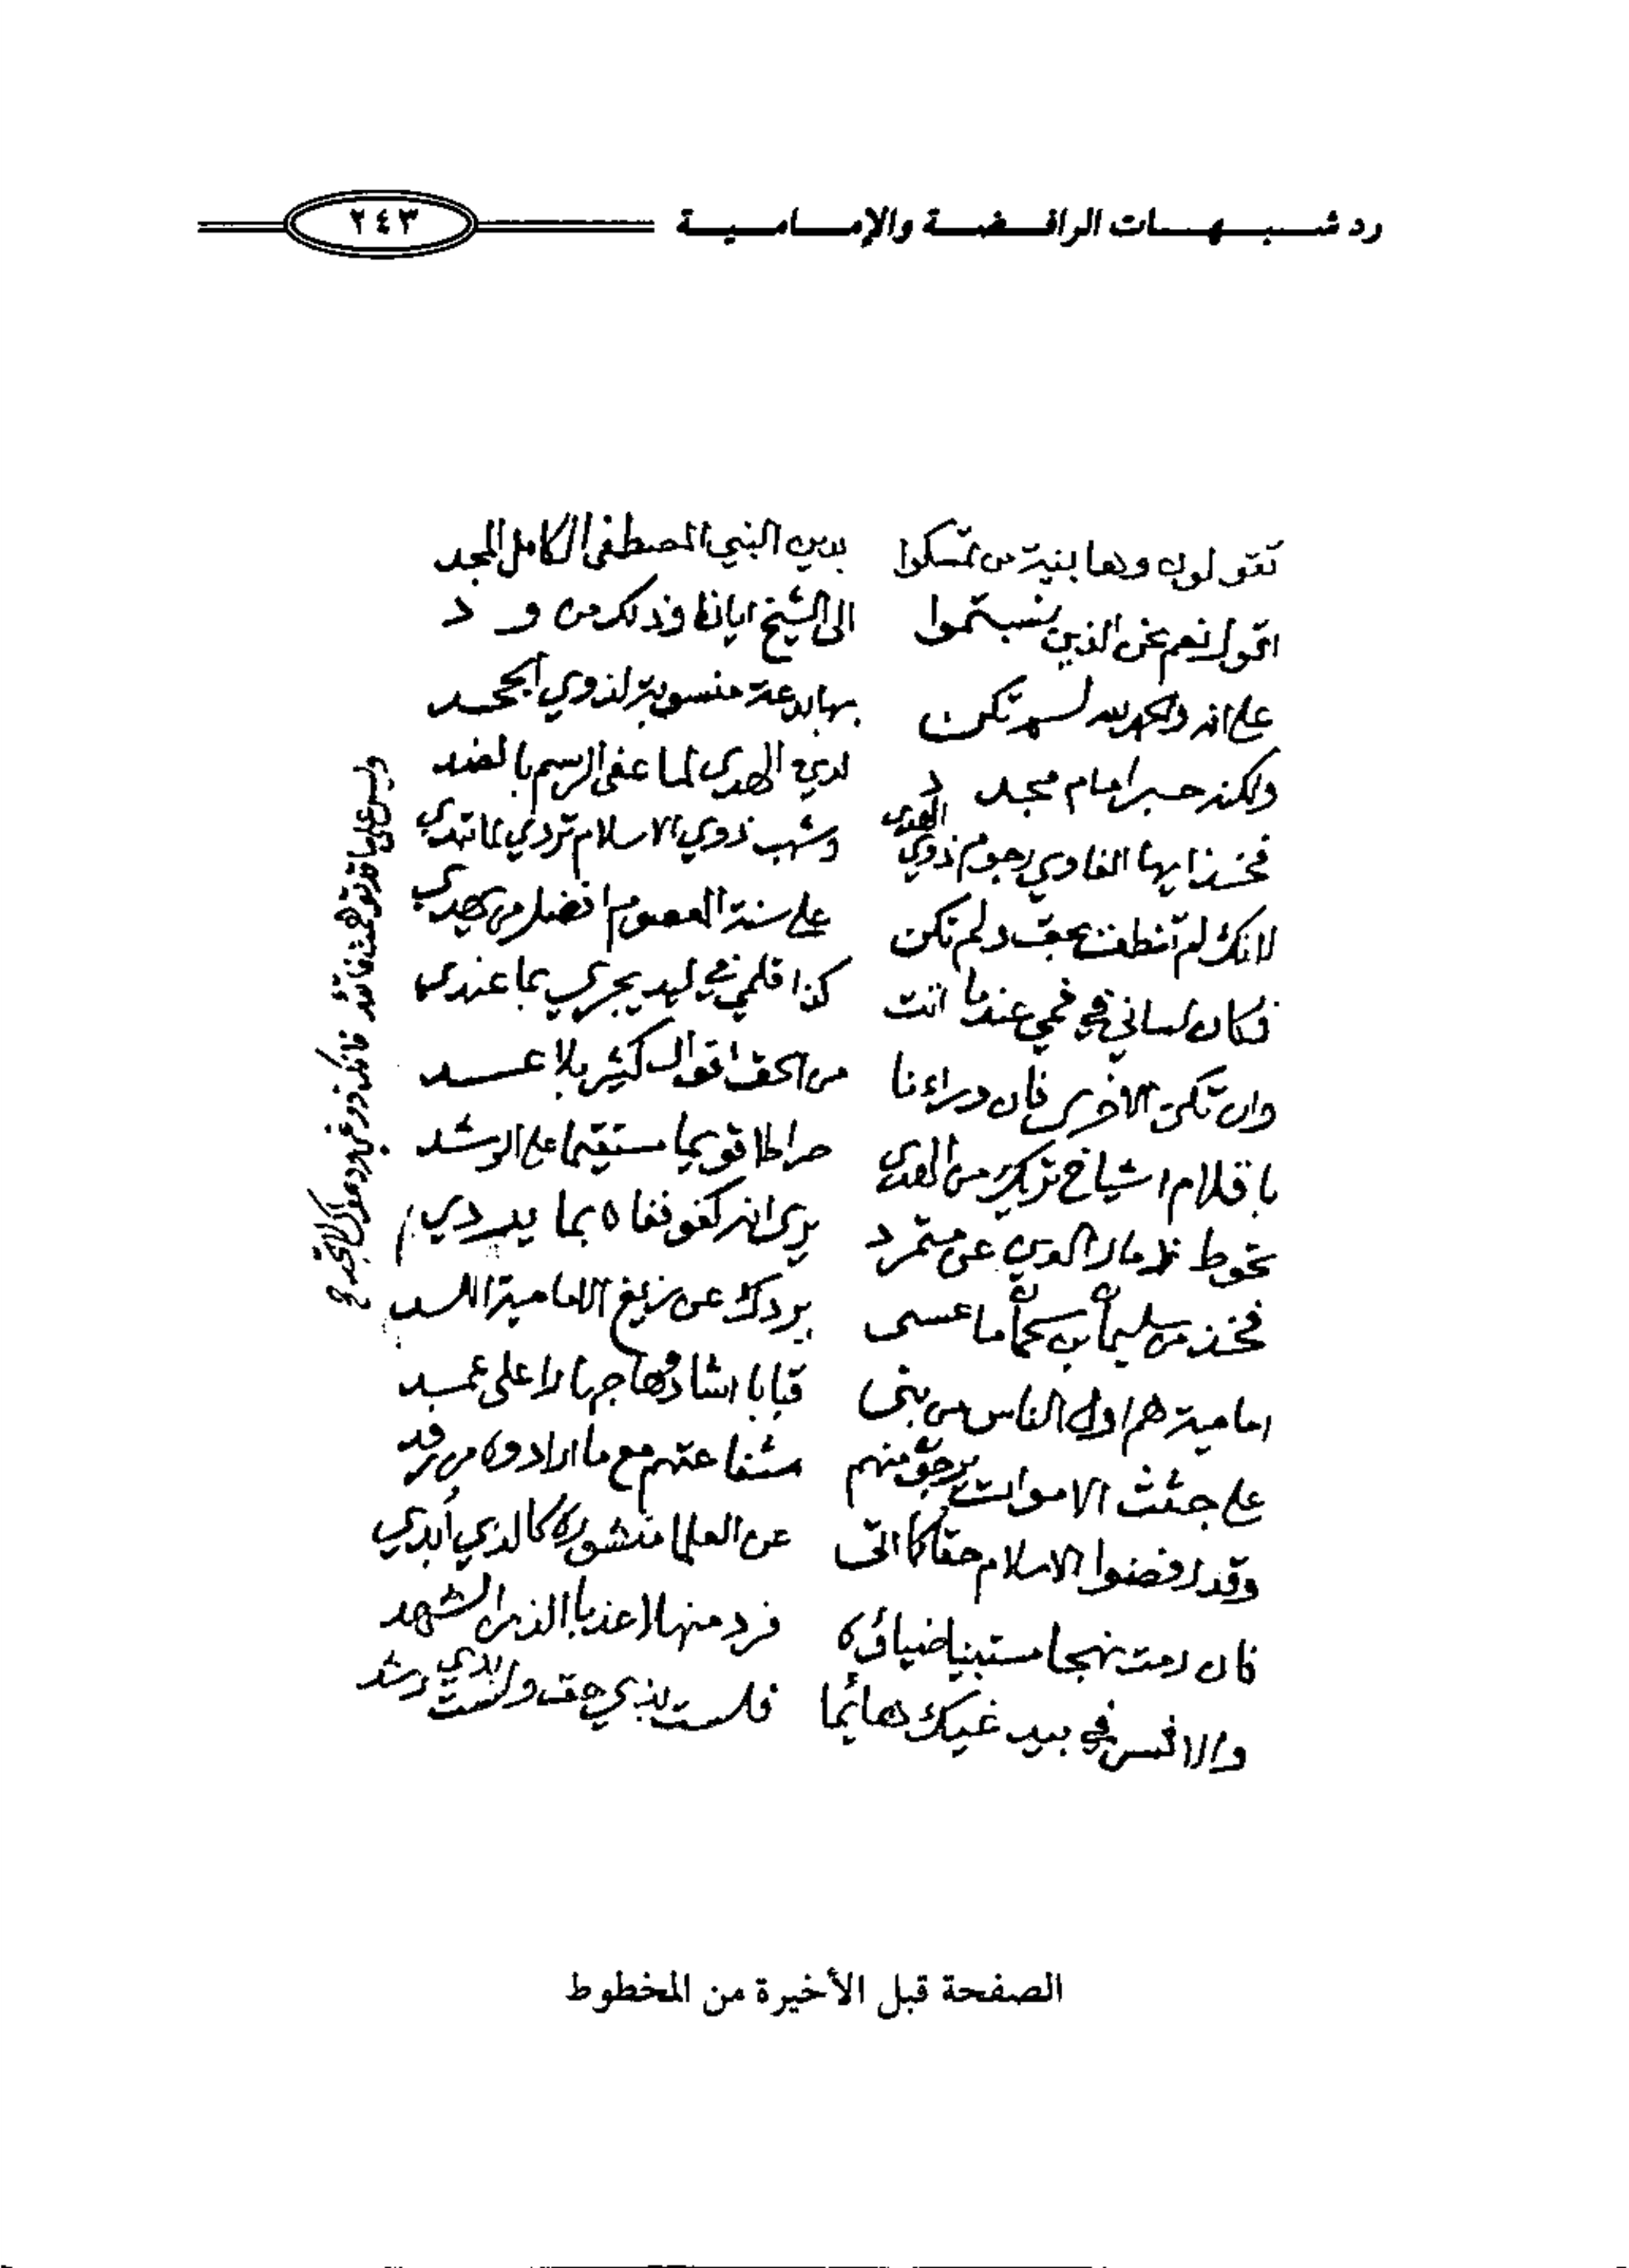 رد شبهات الرافضة والإمامية ٢٤٣
تقولون وهابية من تمسكوا بدين النبي المصطفى الكامل المجد
اقول نعم نحن الذين نسبتموا الى الشيخ ايانا وذلك من و د
على انه والحمد لله لم تكن بها بدعة منسوبة لذوي الجحد
ولكنه حبر امام مجدد لدين الهدى لما عفى الرسم بالضد
فخذ ايها الغاوي رجوم ذوي الهدى وشهب ذوي الاسلام تردي لما تبدي
لانك لم تنطق بحق ولم تكن على سنة المعصوم افضل من يهدي
فكان لساني في فمي عندما انت كذا قلمي في اليد يجري بما عندي
وان تكن الاخرى فان وراءنا من الحق اقوال كثير بلا عد
باقلام اشياخ تريك من الهدى صراطا قويما مستقيما على الرشد
تحوط ذمار الدين عن متمرد يرى انه كفو نفاه بما يردي
فخذ من سليمان بن سحمان ما عسى يردك عن زيغ الامامية اللد
امامية هم اول الناس من بنى قبابا اشادوها جهارا على عمد
على جثث الاموات يرجون منهم شفاعتهم مع ما ارادوه من رفد
وقد رفضوا الاسلام حقا كما اتى عن العلما منشوره كالذي أبدي
فان رمت نهجا مستبينا ضياؤه فرد منهلا عذبا الذ من الشهد
والا فسر في بيد غيك هائما فلست بذي حق ولست بذي رشد
وليس على ما قد توهمت
الصفحة قبل الأخيرة من المخطوط